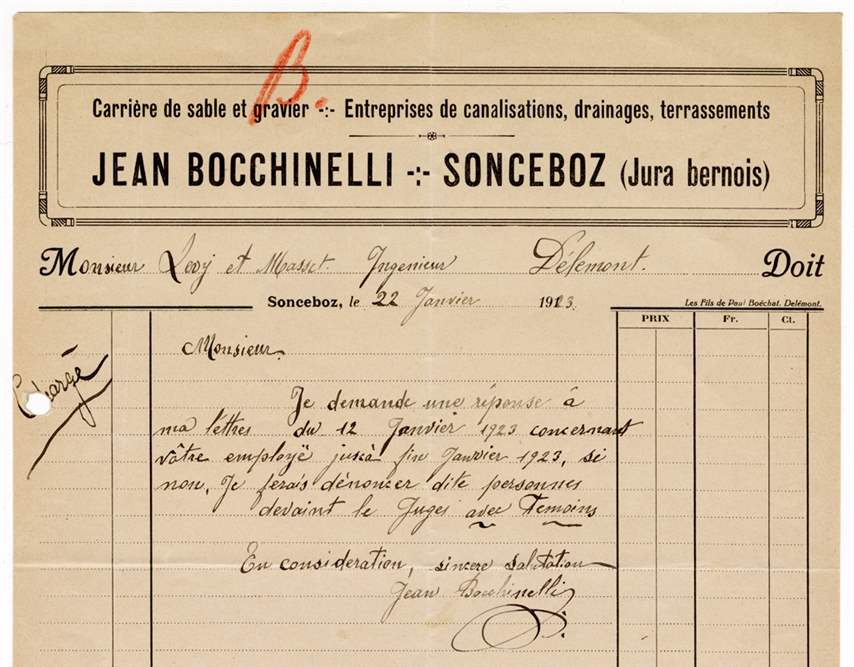 B.
Carrière de sable et gravier -:- Entreprises de canalisations, drainages, terrassements
JEAN BOCCHINELLI -:- SONCEBOZ (Jura bernois)
Monsieur Levy et Masset. Ingenieur Délemont. Doit
Sonceboz, le 22 Janvier 1923.
Les Fils de Paul Boéchat. Delémont.
PRIX Fr. Ct.
Monsieur.
Chargé
Je demande une réponse à
ma léttres du 12 Janvier 1923 concernant
vôtre employë juscà fin Janvier 1923, si
non, Je ferais dénoncer dite personnes
devaint le Juges avec Temoins
En consideration, sincere salutation
Jean Bocchinelli